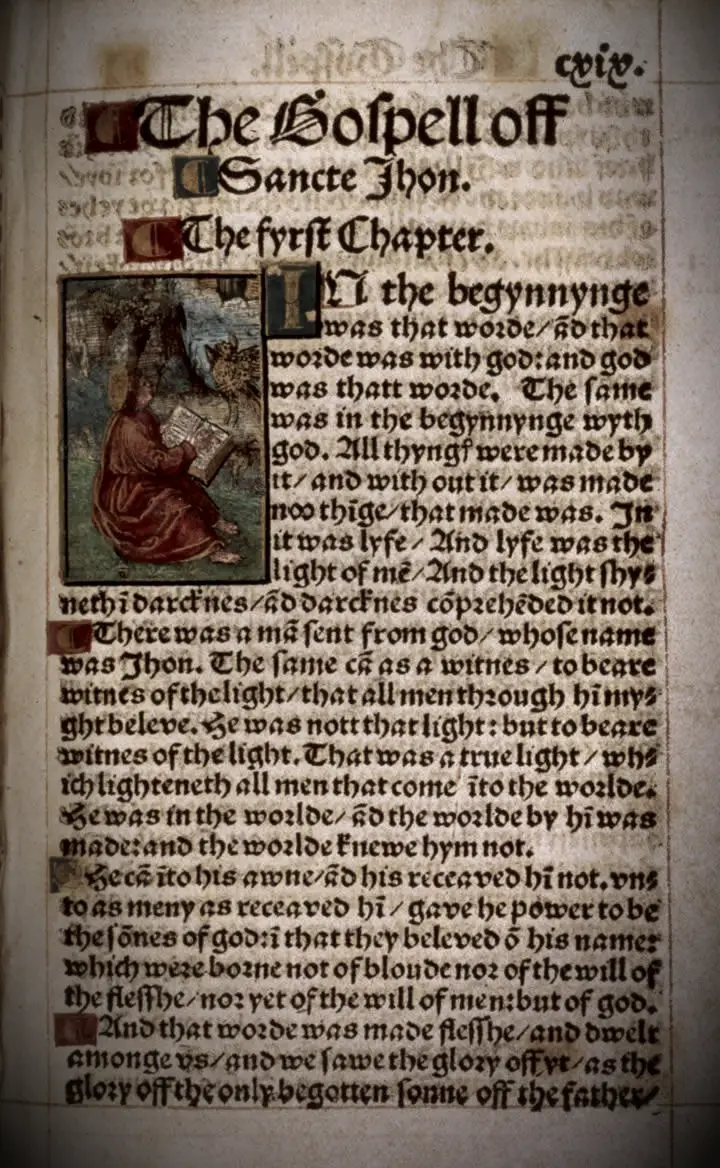 cxix.
The Goſpell off
Sancte Jhon.
The fyrſt Chapter.
IN the begynnynge
was that worde/ ād that
worde was with god: and god
was thatt worde. The ſame
was in the begynnynge wyth
god. All thyngꝭ were made by
it/ and with out it/ was made
noo thīge/ that made was. In
it was lyfe/ And lyfe was the
light of mē/ And the light ſhy⸗
neth ī darcknes/ ād darcknes cōprehēded it not.
There was a mā ſent from god/ whoſe name
was Jhon. The ſame cā as a witnes/ to beare
witnes of the light/ that all men through hī my⸗
ght beleve. He was nott that light: but to beare
witnes of the light. That was a true light/ wh⸗
ich lighteneth all men that come īto the worlde.
He was in the worlde/ ād the worlde by hī was
made: and the worlde knewe hym not.
He cā īto his awne/ ād his receaved hī not. vn⸗
to as meny as receaved hī/ gave he power to be
the ſōnes of god: ī that they beleved ō his name:
which were borne not of bloude nor of the will of
the fleſſhe/ nor yet of the will of men: but of god.
And that worde was made fleſſhe/ and dwelt
amonge vs/ and we ſawe the glory off yt/ as the
glory off the only begotten ſonne off the father/